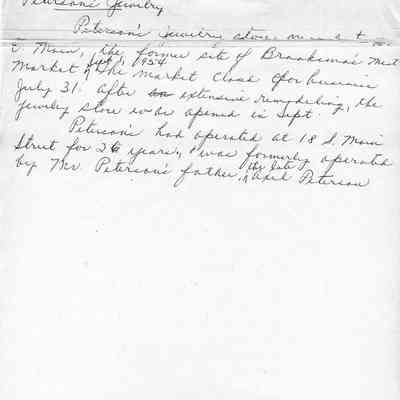 Peterson's Jewelry
Peterson's jewelry store
E. Main, the former site of Braaksma's Meat
Market, Sept 1, 1954 The Market closed for business
July 31. After an extensive remodeling, the
jewelry store was opened in Sept.
Peterson's had operated at 18 S. Main
Street for 26 years, & was formerly operated
by Mr. Peterson's father, the late Axel Peterson